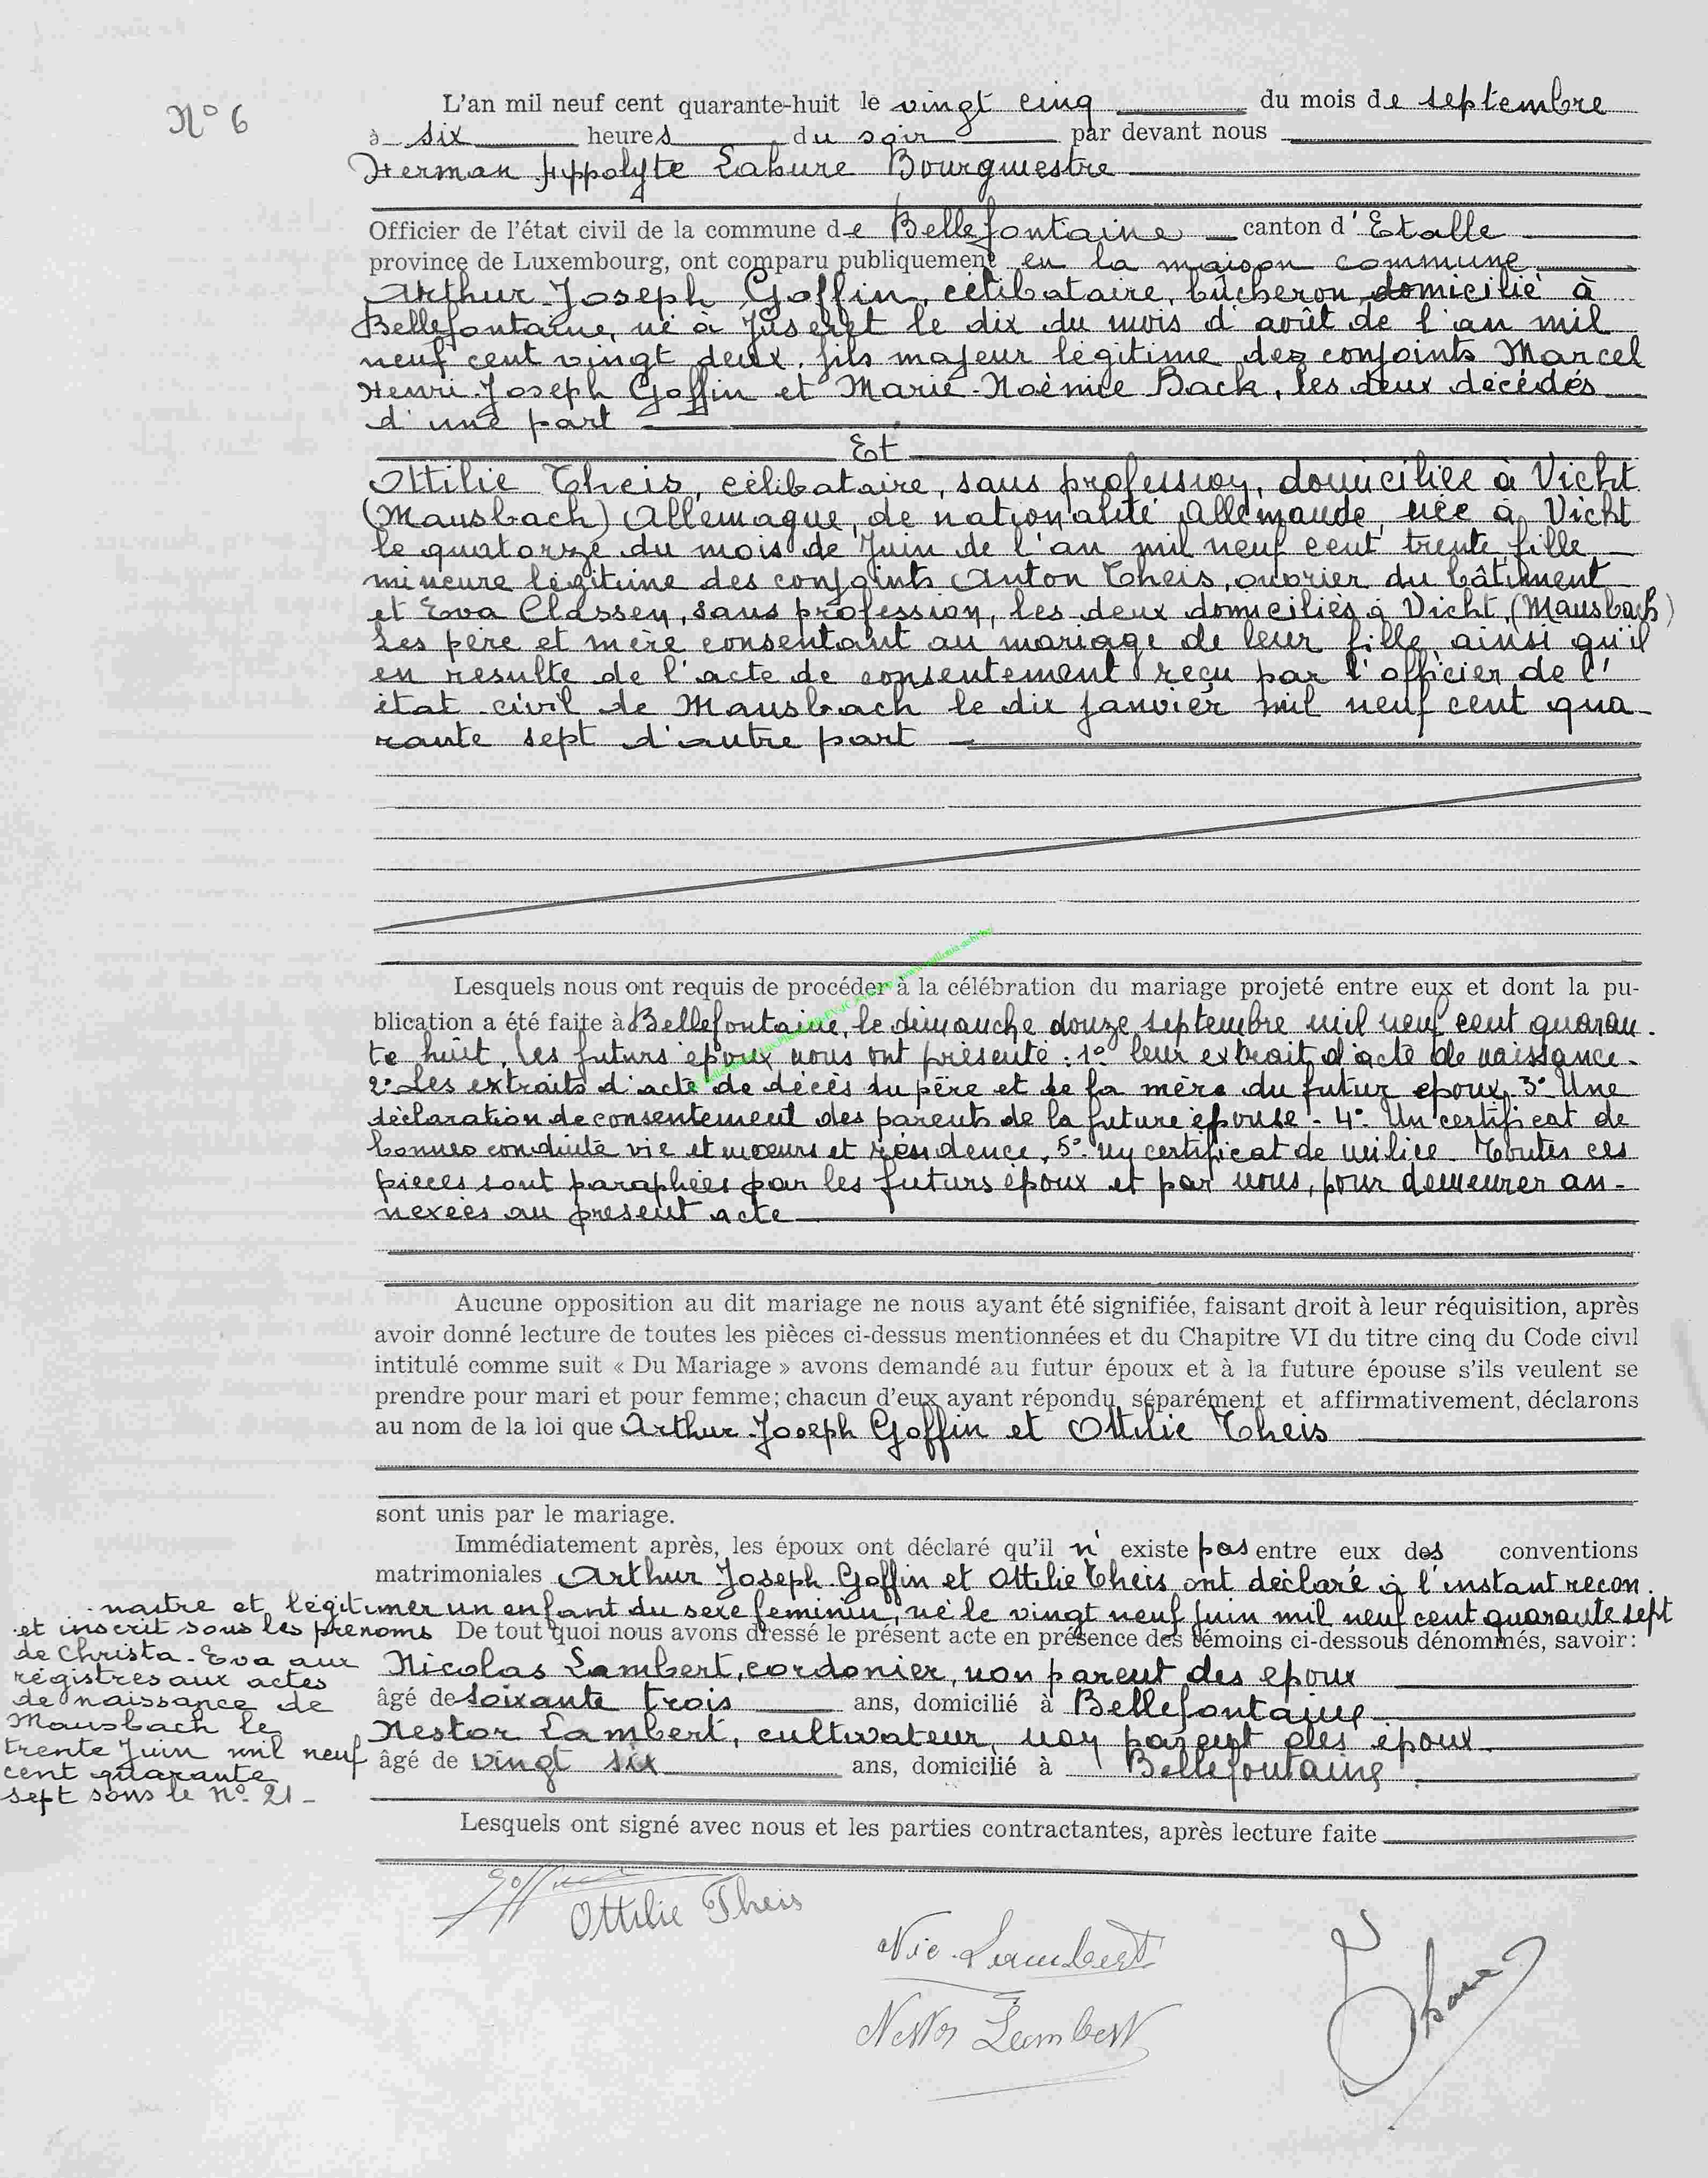 N° 6
L'an mil neuf cent quarante-huit le vingt cinq du mois de septembre
à six heures du soir par devant nous
Herman Hyppolyte Lahure Bourgmestre
Officier de l'état civil de la commune de Bellefontaine canton d'Etalle
province de Luxembourg, ont comparu publiquement en la maison commune
Arthur-Joseph Goffin, célibataire, bûcheron, domicilié à
Bellefontaine, né à Juseret le dix du mois d'août de l'an mil
neuf cent vingt deux, fils majeur légitime des conjoints Marcel
Henri-Joseph Goffin et Marie-Noèmie Back, les deux décédés
d'une part
Et
Ottilie Theis, célibataire, sans profession, domiciliée à Vicht
(Mausbach) Allemagne, de nationalité Allemande, née à Vicht
le quatorze du mois de Juin de l'an mil neuf cent trente fille
mineure légitime des conjoints Anton Theis, ouvrier du bâtiment
et Eva Classen, sans profession, les deux domiciliés à Vicht (Mausbach)
Les père et mère consentant au mariage de leur fille, ainsi qu'il
en resulte de l'acte de consentement reçu par l'officier de l'
état civil de Mausbach le dix janvier mil neuf cent qua-
rante sept d'autre part
Lesquels nous ont requis de procéder à la célébration du mariage projeté entre eux et dont la pu-
blication a été faite à Bellefontaine, le dimanche douze septembre mil neuf cent quaran-
te huit, les futurs époux nous ont présenté : 1° leur extrait d'acte de naissance-
2° Les extraits d'acte de décès du père et de la mère du futur epoux, 3° Une
déclaration de consentement des parents de la future épouse - 4° Un certificat de
bonnes conduite vie et mœurs et résidence, 5° un certificat de milice. Toutes ces
pièces sont paraphées par les futurs époux et par nous, pour demeurer an-
nexées au présent acte
Aucune opposition au dit mariage ne nous ayant été signifiée, faisant droit à leur réquisition, après
avoir donné lecture de toutes les pièces ci-dessus mentionnées et du Chapitre VI du titre cinq du Code civil
intitulé comme suit « Du Mariage » avons demandé au futur époux et à la future épouse s'ils veulent se
prendre pour mari et pour femme; chacun d'eux ayant répondu séparément et affirmativement, déclarons
au nom de la loi que Arthur-Joseph Goffin et Ottilie Theis
sont unis par le mariage.
Immédiatement après, les époux ont déclaré qu'il n'existe pas entre eux des conventions
matrimoniales Arthur Joseph Goffin et Ottilie Theis ont déclaré à l'instant recon-
naitre et légitimer un enfant du sexe feminin, né le vingt neuf Juin mil neuf cent quarante sept
et inscrit sous les prénoms
de Christa-Eva aux
régistres aux actes
de naissance de
Mausbach le
trente Juin mil neuf
cent quarante
sept sous le n° 21-
De tout quoi nous avons dressé le présent acte en présence des témoins ci-dessous dénommés, savoir:
Nicolas Lambert, cordonier, non parent des epoux
âgé de soixante trois ans, domicilié à Bellefontaine
Nestor Lambert, cultivateur, non parent des époux
âgé de vingt six ans, domicilié à Bellefontaine.
Lesquels ont signé avec nous et les parties contractantes, après lecture faite
Goffin
Ottilie Theis
Nic. Lambert
Nestor Lambert